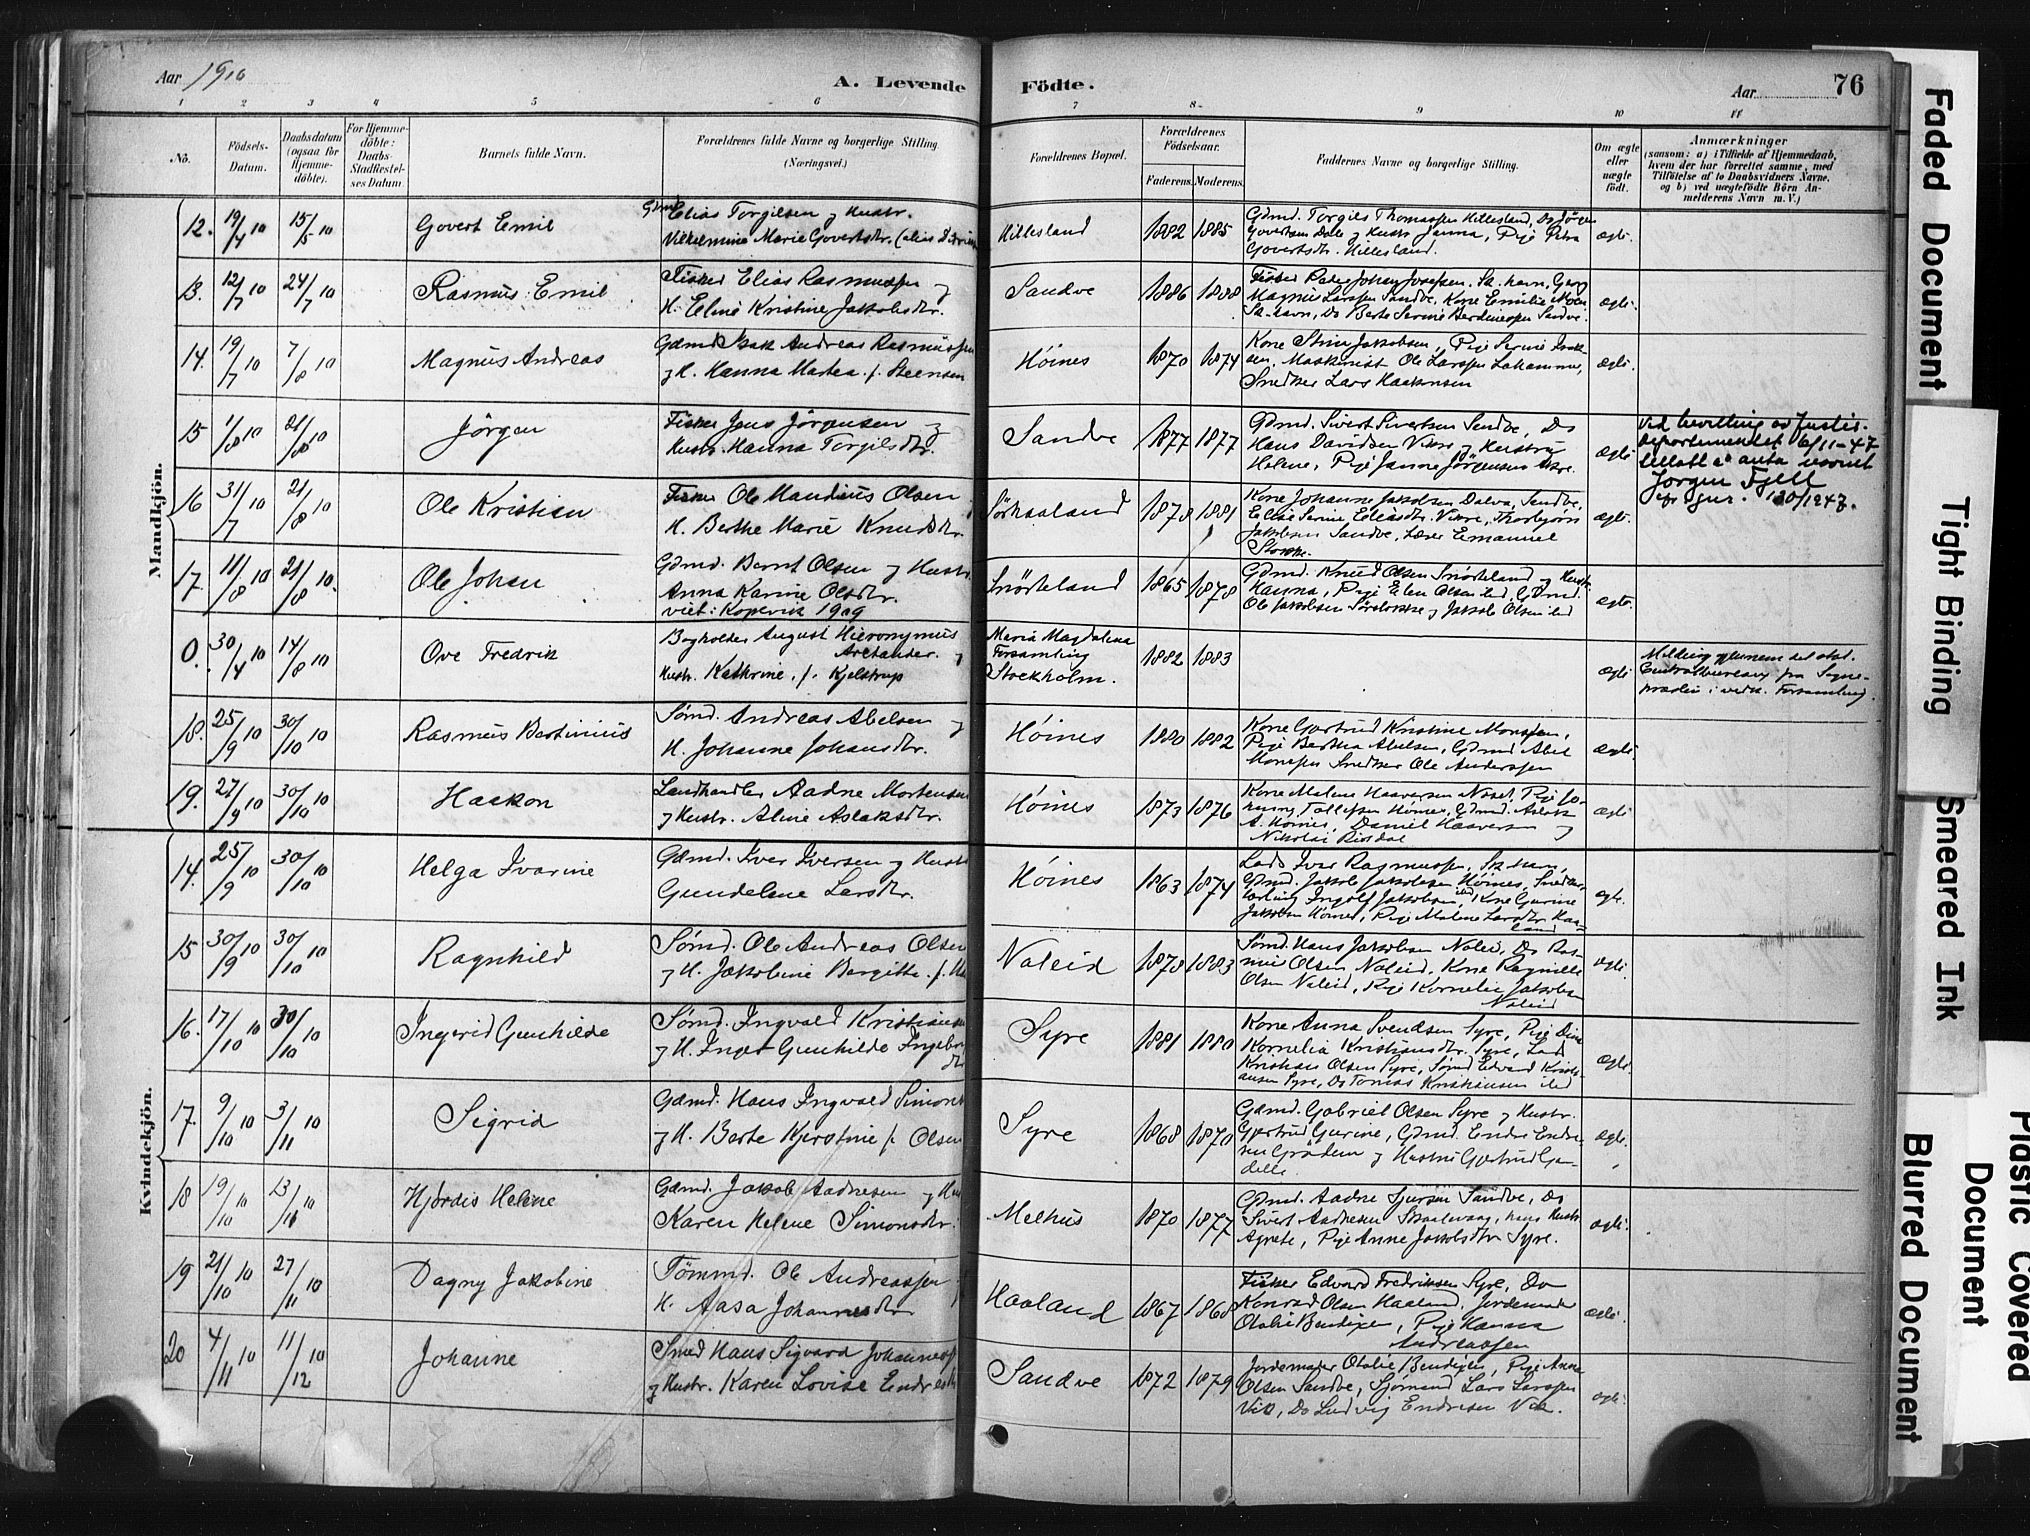 Aar 1910
A. Levende Födte.
Aar
76
1 2 3 4 5 6 7 8 9 10 11
No.
Födsels-Datum.
Daabsdatum (ogsaa for Hjemme-döbte).
For Hjemme-döbte: Daabs-Stadfæstel-ses Datum.
Barnets fulde Navn.
Forældrenes fulde Navne og borgerlige Stilling. (Næringsvei.)
Forældrenes Bopæl.
Forældrenes Födselsaar.
Faderens. Moderens.
Faddernes Navne og borgerlige Stilling.
Om ægte eller uægte födt.
Anmærkninger
(saasom: a) i Tilfælde af Hjemmedaab, hvem der har forrettet samme, med Tilföielse af to Daabsvidners Navne, og b) ved uægtefödte Börn Anmelderens Navn m. V.)
Mandkjön.
12. 19/4 10 15/5 10 Govert Emil
Gdmd Elias Torgilsen og Hustr.
Vilhelmine Marie Govertsdtr.
Hillesland 1882 1885
Gdmd. Torgils Thomassen Hillesland, Do Jørgen
Govertsen Dale og Hustr Janna, Pige Petra
Govertsdtr. Hillesland.
ægte.
13. 12/7 10 24/7 10 Rasmus Emil
Fisker Elias Rasmussen og
H. Eline Kristine Jakobsdtr.
Sandve 1886 1888
Fisker Peder Johan Josefsen, Sk.havn, Georg
Magnus Larssen Sandve, Kone Emilie
Sk.havn, Do Berte Serine Sandve.
ægte.
14. 19/7 10 7/8 10 Magnus Andreas
Gdmd Isak Andreas Rasmussen
og H. Hanna Martea f. Steensen
Höines 1870 1874
Kone Stine Jakobsen, Pige Serine Isak-
sen, Maskinist Ole Larssen Lahamme,
Snedker Lars Haakonsen
ægte.
15 1/8 10 21/8 10 Jörgen
Fisker Jens Jörgensen og
Hustr. Hanna Torgilsdtr.
Sandve 1877 1877
Gdmd. Sivert Sivertsen Sandve, Do
Hans Davidsen Vikre og Hustru
Helene, Pige Janne Jörgensen
ægte
Ved bevilling av Justis-
departementet 6/11-47
tillatt å anta navnet
Jörgen Fjell
jfr. jnr. 130/1947.
16 31/7 10 21/8 10 Ole Kristian
Fisker Ole Mandius Olsen
H. Berthe Marie Knudsdtr.
Sörhaaland 1878 1881
Kone Johanne Jakobsen Dalva, Sandve,
Elise Serine Eliasdtr. Vikre, Thorbjørn
Jakobsen Sandve, Lærer Emanuel
Stokke.
ægte.
17. 11/8 10 21/8 10. Ole Johan
Gdmd. Bernt Olsen og Hustr.
Anna Karine Olsdtr.
viet: Kopervik 1909
Snörteland 1865 1878
Gdmd. Knud Olsen Snörteland og Hustr.
Hanna, Pige Elen Olsen ibd, Gdmd.
Ole Jakobsen og Jakob Olsen ibd
ægte.
0. 30/4 10 14/8 10 Ove Fredrik
Bogholder August Hieronymus
Arctander. og
Hustr. Kathrine, f. Kjelstrup
Maria Magdalena
Forsamling
Stockholm.
1882 1883
ægte
Melding gjennem det stat.
Centralbureau fra Sogne-
præsten i vedk. Forsamling.
18. 25/9 10 30/10 10 Rasmus Bertinius
Sømd. Andreas Abelsen og
H. Johanne Johansdtr.
Höines 1880 1882
Kone Gjertrud Kristine Monssen,
Pige Bertha Abelsen, Gdmd Abel
Monssen Snedker Ole Anderssen
ægte
19. 27/9 10 30/10 10 Haakon
Landhandler Aadne Mortensen
og Hustr. Aline Aslaksdtr.
Höines 1873 1876
Kone Malene Haaversen Næset, Pige Jo-
hanne Tollefsen Höines, Gdmd. Aslak
A. Höines, Daniel Haaversen og
Nikolai
ægte
Kvindekjön.
14. 25/9 10 30/10 10 Helga Ivarine
Gdmd. Iver Iversen og Hustr
Gundeline Larsdtr.
Höines 1863 1874
Lods Iver Rasmussen, Sk.havn,
Gdmd. Jakob Jakobsen Höines, Snedker-
lærling Ingolf Jakobsen ibd, Kone Gurine
Jakobsen Höines, Pige Malene Larsdtr. Haa-
land
ægte.
15 30/9 10 30/10 10 Ragnhild
Sømd. Ole Andreas Olsen
og H. Jakobine Bergitte f.
Naleid 1878 1883
Sømd. Hans Jakobsen Naleid, Do Ras-
mus Olsen Naleid, Kone Ragnille
Olsen Naleid, Pige Kornelie Jakobsen
Naleid
ægte.
16. 17/10 10 30/10 10 Ingerid Gunhilde
Sømd. Ingvald Kristiansen
og H. Inger Gunhilde Ingebr
dtr
Syre 1881 1880
Kone Anna Svendsen Syre, Pige Dina
Kornelia Kristiansdtr. Syre, Lods
Kristian Olsen Syre, Sømd Edvard Kristi-
ansen Syre, Do Tomas Kristiansen ibd
ægte.
17. 9/10 10 3/11 10 Sigrid
Gdmd. Hans Ingvald Simons
og H. Berte Kjerstine f. Olsen
Syre 1868 1870
Gdmd. Gabriel Olsen Syre og Hustr.
Gjertrud Gurine, Gdmd. Endre Endre-
sen Grödem og Hustru Gjertrud Gun-
delle
ægte.
18 19/10 10 13/11 10 Hjørdis Helene
Gdmd. Jakob Aadnesen og Hus
Karen Helene Simonsdtr.
Melhus 1870 1877
Gdmd. Aadne Sjursen Sandve, Do
Sivert Aadnesen Skaalevaag, hans Hustr
Agnete, Pige Anne Jakobsdtr Syre.
ægte.
19 21/10 10 27/11 10 Dagny Jakobine
Tömmd. Ole Andreassen
H. Aasa Johannesdtr
Haaland 1867 1868
Fisker Edvard Fredriksen Syre, Do
Konrad Olsen Haaland, Jordemoder
Otalie Bendixen, Pige Hanna
Andreassen
ægte.
20 4/11 10 11/12 10 Johanne
Smed Hans Sigvard Johannes
og Hustr. Karen Lovise Endresdtr
Sandve 1872 1879
Jordemoder Otalie Bendixen, Pige Anna
Olsen Sandve, Sjömand Lars Larssen
Vik, Do Ludvig Endresen Vik.
ægte.
Faded Document
Tight Binding
Smeared Ink
Plastic Covered Document
Blurred Document